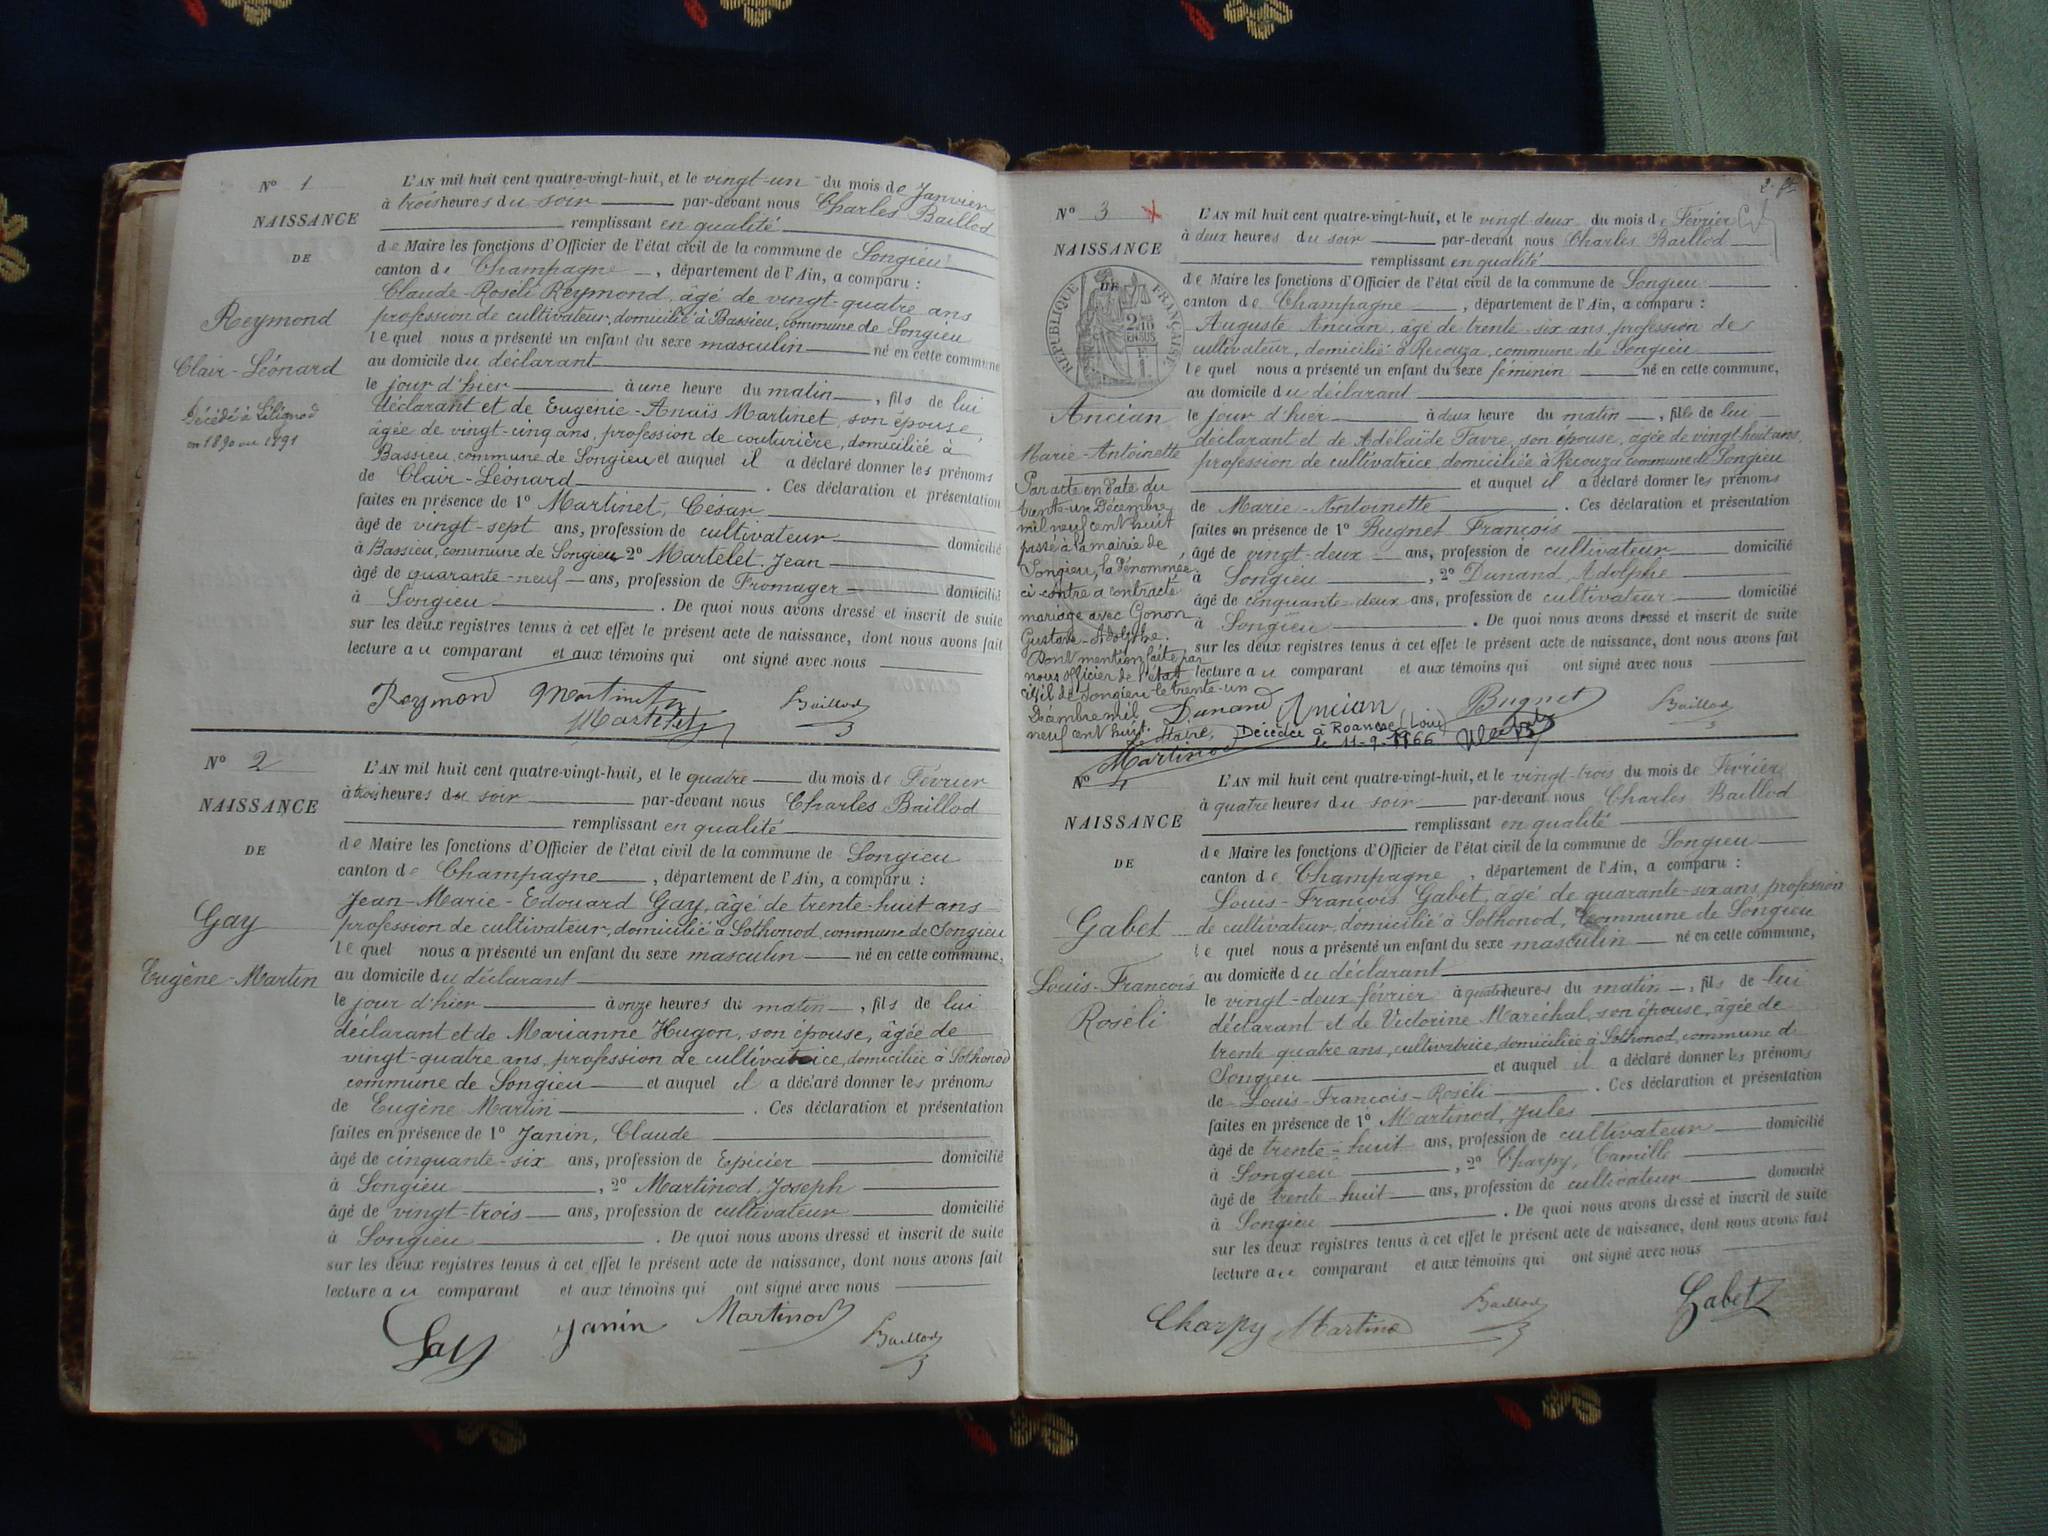 N° 1
NAISSANCE
DE
Reymond
Clair-Léonard
Décédé à Lilignod
en 1890 ou 1891
L'AN mil huit cent quatre-vingt-huit, et le vingt-un du mois de Janvier
à trois heures du soir par-devant nous Charles Baillod
remplissant en qualité
de Maire les fonctions d'Officier de l'état civil de la commune de Songieu
canton de Champagne, département de l'Ain, a comparu :
Claude-Roséli Reymond, âgé de vingt-quatre ans
profession de cultivateur, domicilié à Bassieu, commune de Songieu
lequel nous a présenté un enfant du sexe masculin né en cette commune
au domicile du déclarant
le jour d'hier à une heure du matin, fils de lui
déclarant et de Eugénie-Anaïs Martinet, son épouse,
âgée de vingt-cinq ans, profession de couturière, domiciliée à
Bassieu, commune de Songieu et auquel il a déclaré donner les prénoms
de Clair-Léonard. Ces déclaration et présentation
faites en présence de 1° Martinet, César
âgé de vingt-sept ans, profession de cultivateur domicilié
à Bassieu, commune de Songieu 2° Martelet Jean
âgé de quarante-neuf ans, profession de Fromager domicilié
à Songieu. De quoi nous avons dressé et inscrit de suite
sur les deux registres tenus à cet effet le présent acte de naissance, dont nous avons fait
lecture au comparant et aux témoins qui ont signé avec nous
Reymond Martinet Baillod
Martelet
N° 2
NAISSANCE
DE
Gay
Eugène-Martin
L'AN mil huit cent quatre-vingt-huit, et le quatre du mois de Février
à trois heures du soir par-devant nous Charles Baillod
remplissant en qualité
de Maire les fonctions d'Officier de l'état civil de la commune de Songieu
canton de Champagne, département de l'Ain, a comparu :
Jean-Marie-Edouard Gay, âgé de trente-huit ans
profession de cultivateur, domicilié à Sothonod, commune de Songieu
lequel nous a présenté un enfant du sexe masculin né en cette commune,
au domicile du déclarant
le jour d'hier à onze heures du matin, fils de lui
déclarant et de Marianne Hugon, son épouse, âgée de
vingt-quatre ans, profession de cultivatrice, domiciliée à Sothonod
commune de Songieu et auquel il a déclaré donner les prénoms
de Eugène Martin. Ces déclaration et présentation
faites en présence de 1° Janin, Claude
âgé de cinquante-six ans, profession de Epicier domicilié
à Songieu, 2° Martinod, Joseph
âgé de vingt-trois ans, profession de cultivateur domicilié
à Songieu. De quoi nous avons dressé et inscrit de suite
sur les deux registres tenus à cet effet le présent acte de naissance, dont nous avons fait
lecture au comparant et aux témoins qui ont signé avec nous
Gay Janin Martinod Baillod
N° 3
NAISSANCE
DE
RÉPUBLIQUE FRANÇAISE
Ancian
Marie-Antoinette
Par acte en date du
trente-un Décembre
mil neuf cent huit
passé à la mairie de
Songieu, la dénommée
ci-contre a contracté
mariage avec Gonon
Gustave-Adolphe.
Dont mention faite par
nous officier de l'état
civil de Songieu le trente-un
Décembre mil
neuf cent huit.
Le Maire,
Martinod
L'AN mil huit cent quatre-vingt-huit, et le vingt-deux du mois de Février
à deux heures du soir par-devant nous Charles Baillod
remplissant en qualité
de Maire les fonctions d'Officier de l'état civil de la commune de Songieu
canton de Champagne, département de l'Ain, a comparu :
Auguste Ancian, âgé de trente-six ans, profession de
cultivateur, domicilié à Recouza, commune de Songieu
lequel nous a présenté un enfant du sexe féminin né en cette commune,
au domicile du déclarant
le jour d'hier à deux heure du matin, fille de lui
déclarant et de Adélaïde Favre, son épouse, âgée de vingt-huit ans,
profession de cultivatrice, domiciliée à Recouza commune de Songieu
et auquel il a déclaré donner les prénoms
de Marie-Antoinette. Ces déclaration et présentation
faites en présence de 1° Bugnet François
âgé de vingt-deux ans, profession de cultivateur domicilié
à Songieu, 2° Dunand, Adolphe
âgé de cinquante-deux ans, profession de cultivateur domicilié
à Songieu. De quoi nous avons dressé et inscrit de suite
sur les deux registres tenus à cet effet le présent acte de naissance, dont nous avons fait
lecture au comparant et aux témoins qui ont signé avec nous
Dunand Ancian Bugnet Baillod
Décédée à Roanne (Loire)
le 11-9-1966
N° 4
NAISSANCE
DE
Gabet
Louis-François
Roséli
L'AN mil huit cent quatre-vingt-huit, et le vingt-trois du mois de Février
à quatre heures du soir par-devant nous Charles Baillod
remplissant en qualité
de Maire les fonctions d'Officier de l'état civil de la commune de Songieu
canton de Champagne, département de l'Ain, a comparu :
Louis-François Gabet, âgé de quarante-six ans, profession
de cultivateur, domicilié à Sothonod, commune de Songieu
lequel nous a présenté un enfant du sexe masculin né en cette commune,
au domicile du déclarant
le vingt-deux février à quatre heures du matin, fils de lui
déclarant et de Victorine Maréchal, son épouse, âgée de
trente quatre ans, cultivatrice, domiciliée à Sothonod, commune de
Songieu et auquel il a déclaré donner les prénoms
de Louis-François-Roséli. Ces déclaration et présentation
faites en présence de 1° Martinod, Jules
âgé de trente-huit ans, profession de cultivateur domicilié
à Songieu, 2° Charpy, Camille
âgé de trente-huit ans, profession de cultivateur domicilié
à Songieu. De quoi nous avons dressé et inscrit de suite
sur les deux registres tenus à cet effet le présent acte de naissance, dont nous avons fait
lecture au comparant et aux témoins qui ont signé avec nous
Charpy Martinod Baillod Gabet